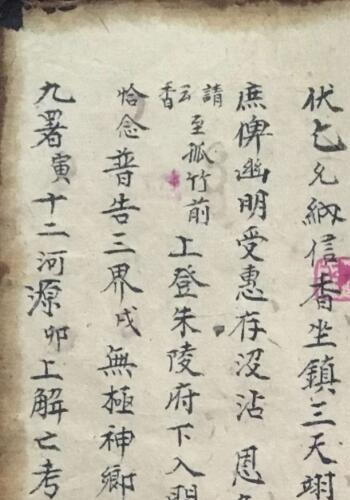 伏乞允納信香坐鎮三天翊
庶俾幽明受惠存没沾 恩
請至孤竹前
香云
上登朱陵府下入開
恰念普告三界戌無極神鄉
九署寅十二河源卯上解亡考